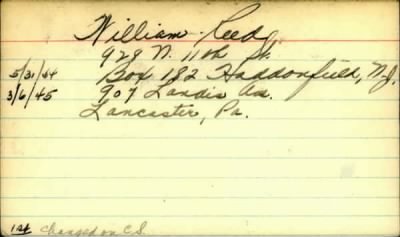 William Reed
928 N. 11th St.
5/31/44 Box 182 Haddonfield, N.J.
3/6/45 907 Landis Ave.
Lancaster, Pa.
1st changed on C.S.